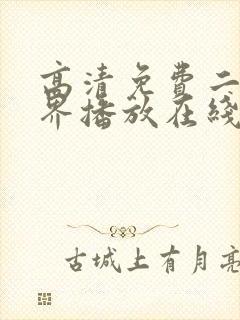 高清免費二
界播放在綫
古城上有月亮